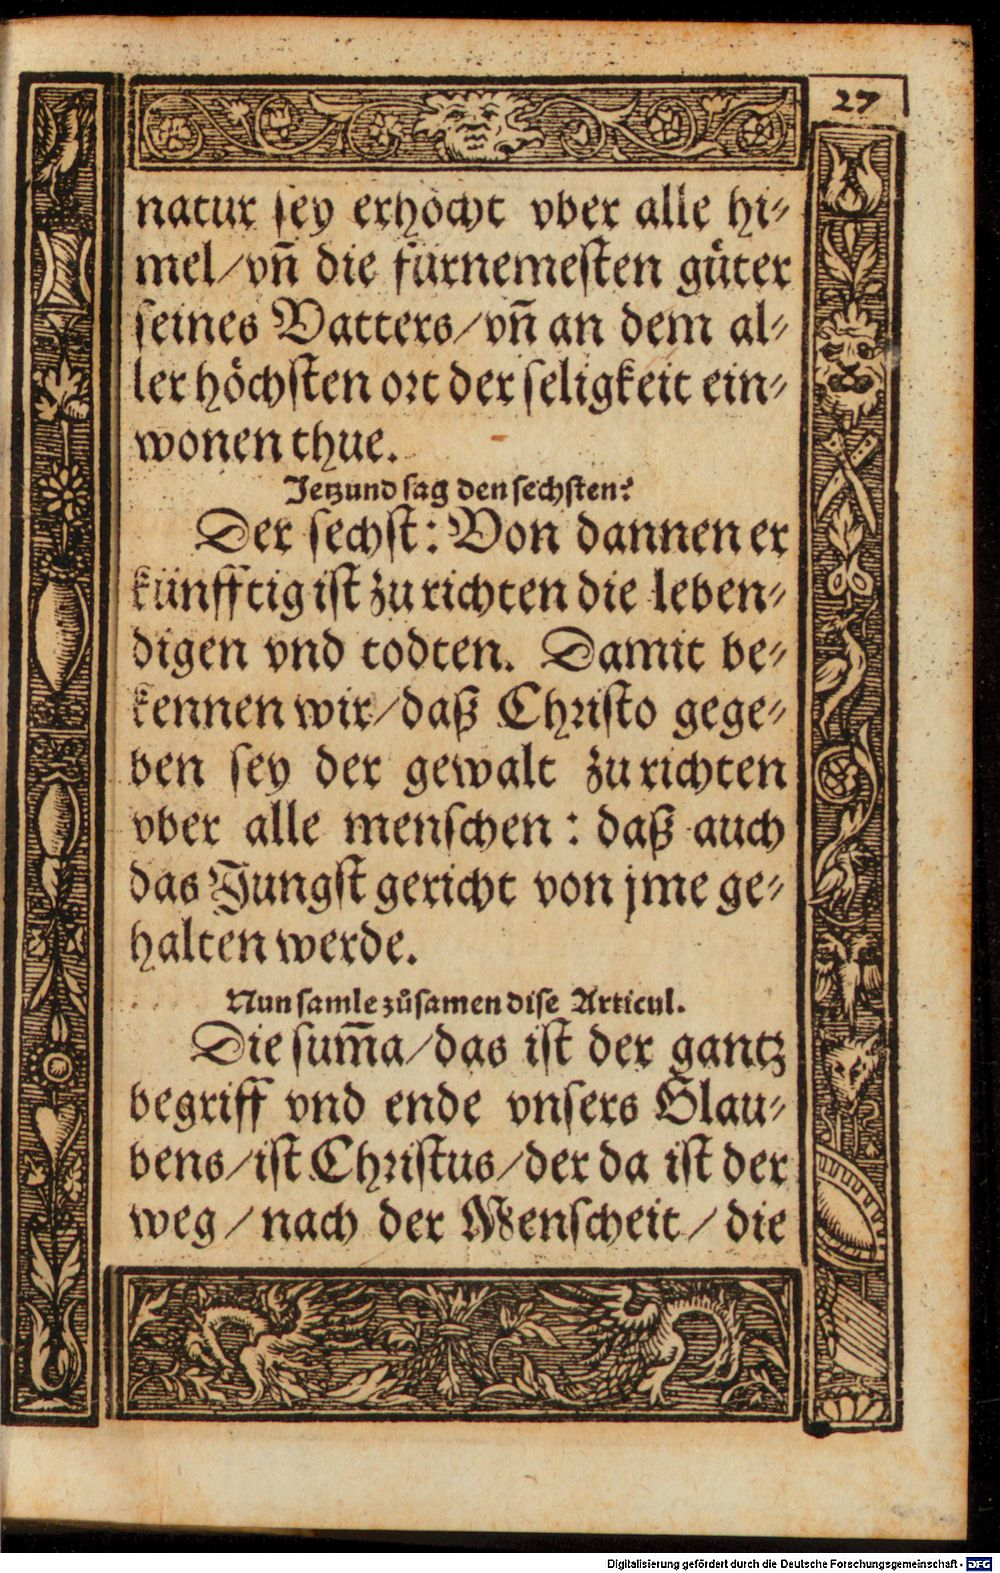 27
natur sey erhöcht vber alle hi-
mel/vñ die fürnemesten güter
seines Vatters/vñ an dem al-
ler höchsten ort der seligkeit ein-
wonen thue.
Jetzund sag den sechsten?
Der sechst: Von dannen er
künfftig ist zu richten die leben-
digen vnd todten. Damit be-
kennen wir/daß Christo gege-
ben sey der gewalt zu richten
vber alle menschen: daß auch
das Jungst gericht von jme ge-
halten werde.
Nun samle zůsamen dise Articul.
Die sum̃a/das ist der gantz
begriff vnd ende vnsers Glau-
bens/ist Christus/der da ist der
weg/nach der Menscheit/die
Digitalisierung gefördert durch die Deutsche Forschungsgemeinschaft - DFG